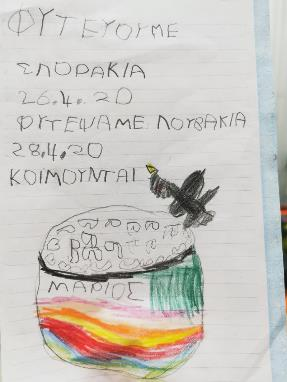 ΦΥΤΕΥΟΥΜΕ
ΣΠΟΡΑΚΙΑ
26.4.20
ΦΥΤΕΨΑΜΕ ΛΟΥΒΑΚΙΑ
28.4.20
ΚΟΙΜΟΥΝΤΑΙ
ΜΑΡΙΟΣ